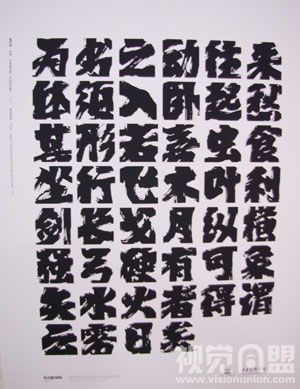 为书之动往来
体须入卧起愁
其形若喜虫食
坐行飞木叶利
剑长戈月纵横
强弓硬有可象
矢水火者得谓
云雾日矣
icograda
视觉同盟
www.visionunion.com